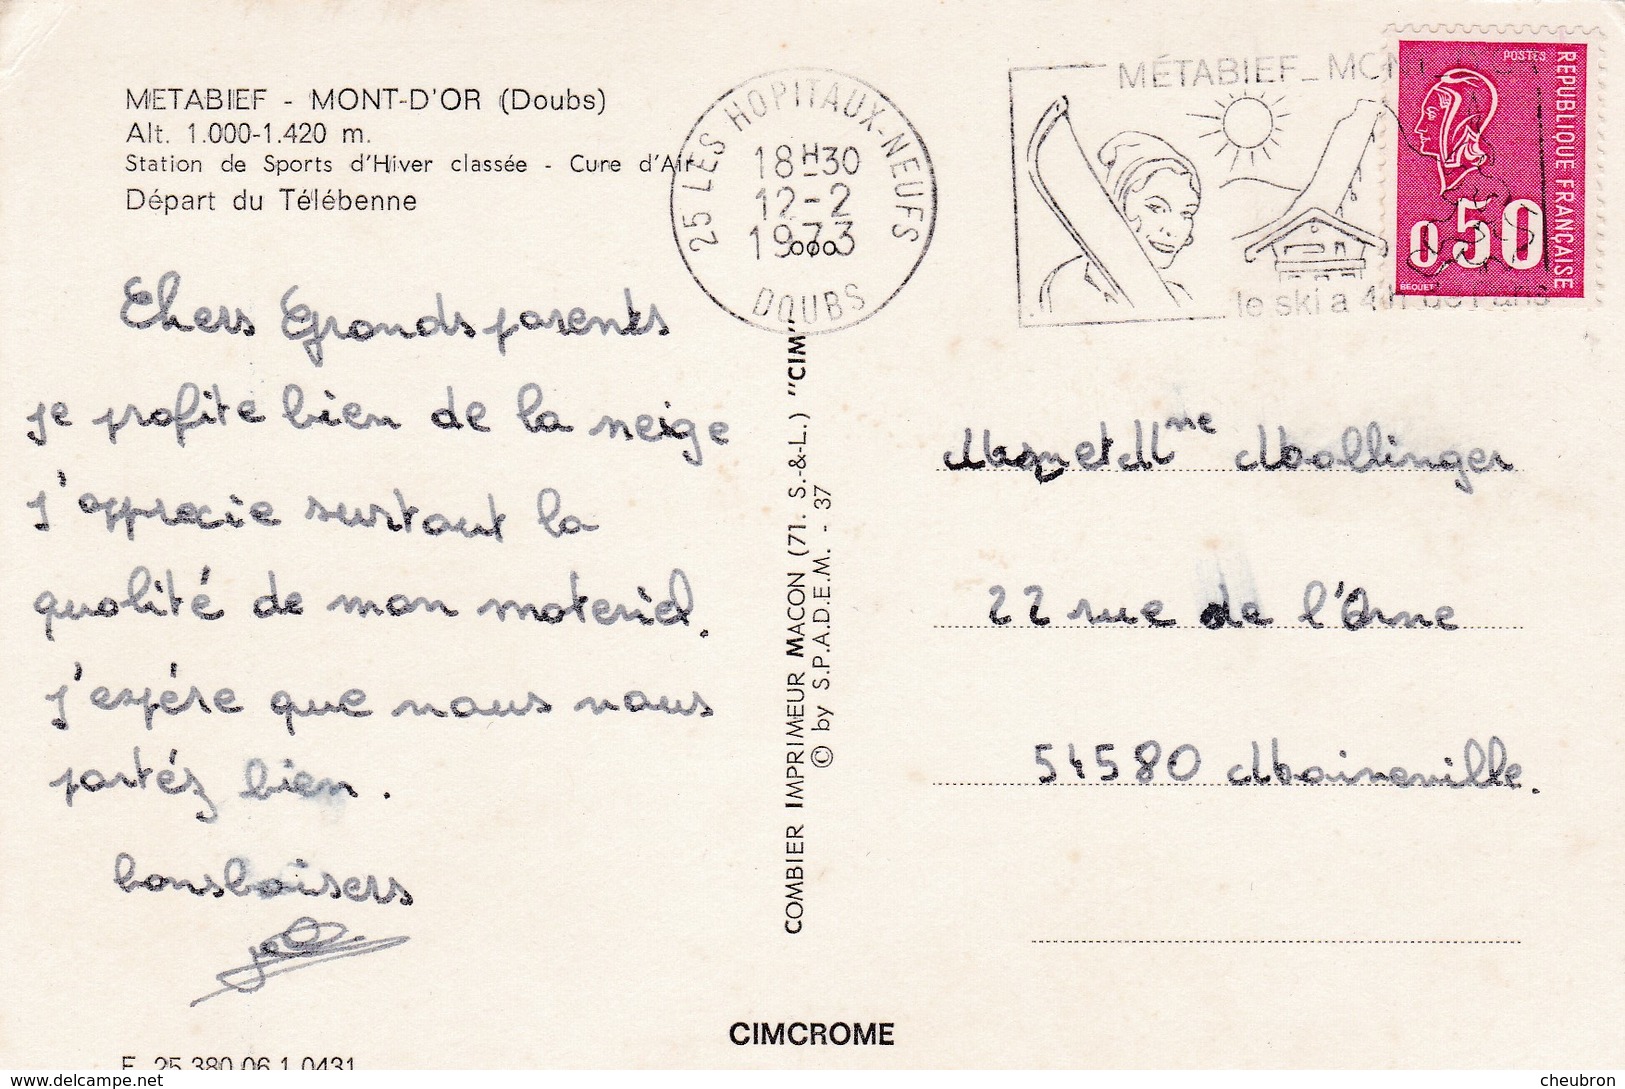 METABIEF - MONT-D'OR (Doubs)
Alt. 1.000-1.420 m.
Station de Sports d'Hiver classée - Cure d'Air
Départ du Télébenne
25 LES HOPITAUX-NEUFS
18H30
12-2
1973
DOUBS
MÉTABIEF_MONT
le ski a 4 h de Paris
POSTES
REPUBLIQUE FRANCAISE
0,50
BEQUET
Chers Grands parents
je profite bien de la neige
J'apprecie surtout la
qualité de mon materiel.
J'espére que nous nous
portéz bien.
bons baisers
COMBIER IMPRIMEUR MACON (71. S.-&-L.) "CIM"
© by S.P.A.D.E.M. - 37
Mr et Mme Mallinger
22 rue de l'Orne
54580 Moineville.
CIMCROME
E 25.380.06.1.0431
cheubron